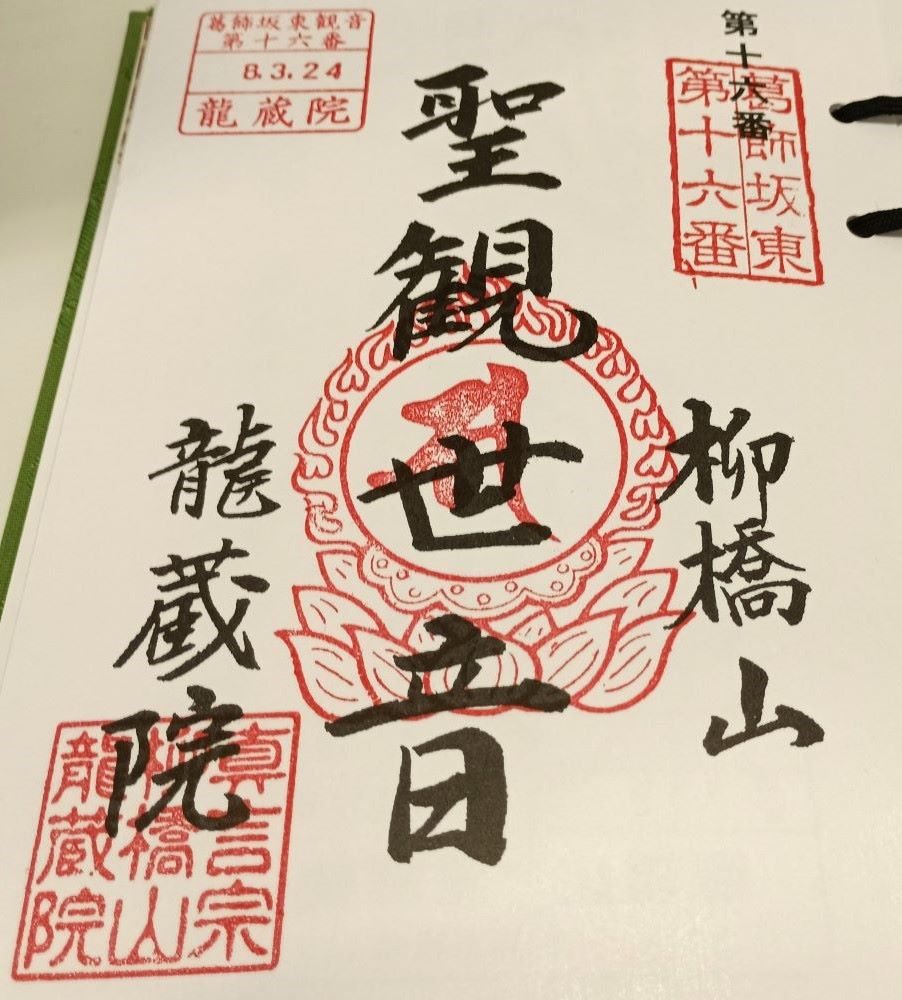 第十六番
葛飾坂東
第十六番
柳橋山
聖観世音
龍蔵院
葛飾坂東観音
第十六番
8.3.24
龍蔵院
真言宗
柳橋山
龍蔵院